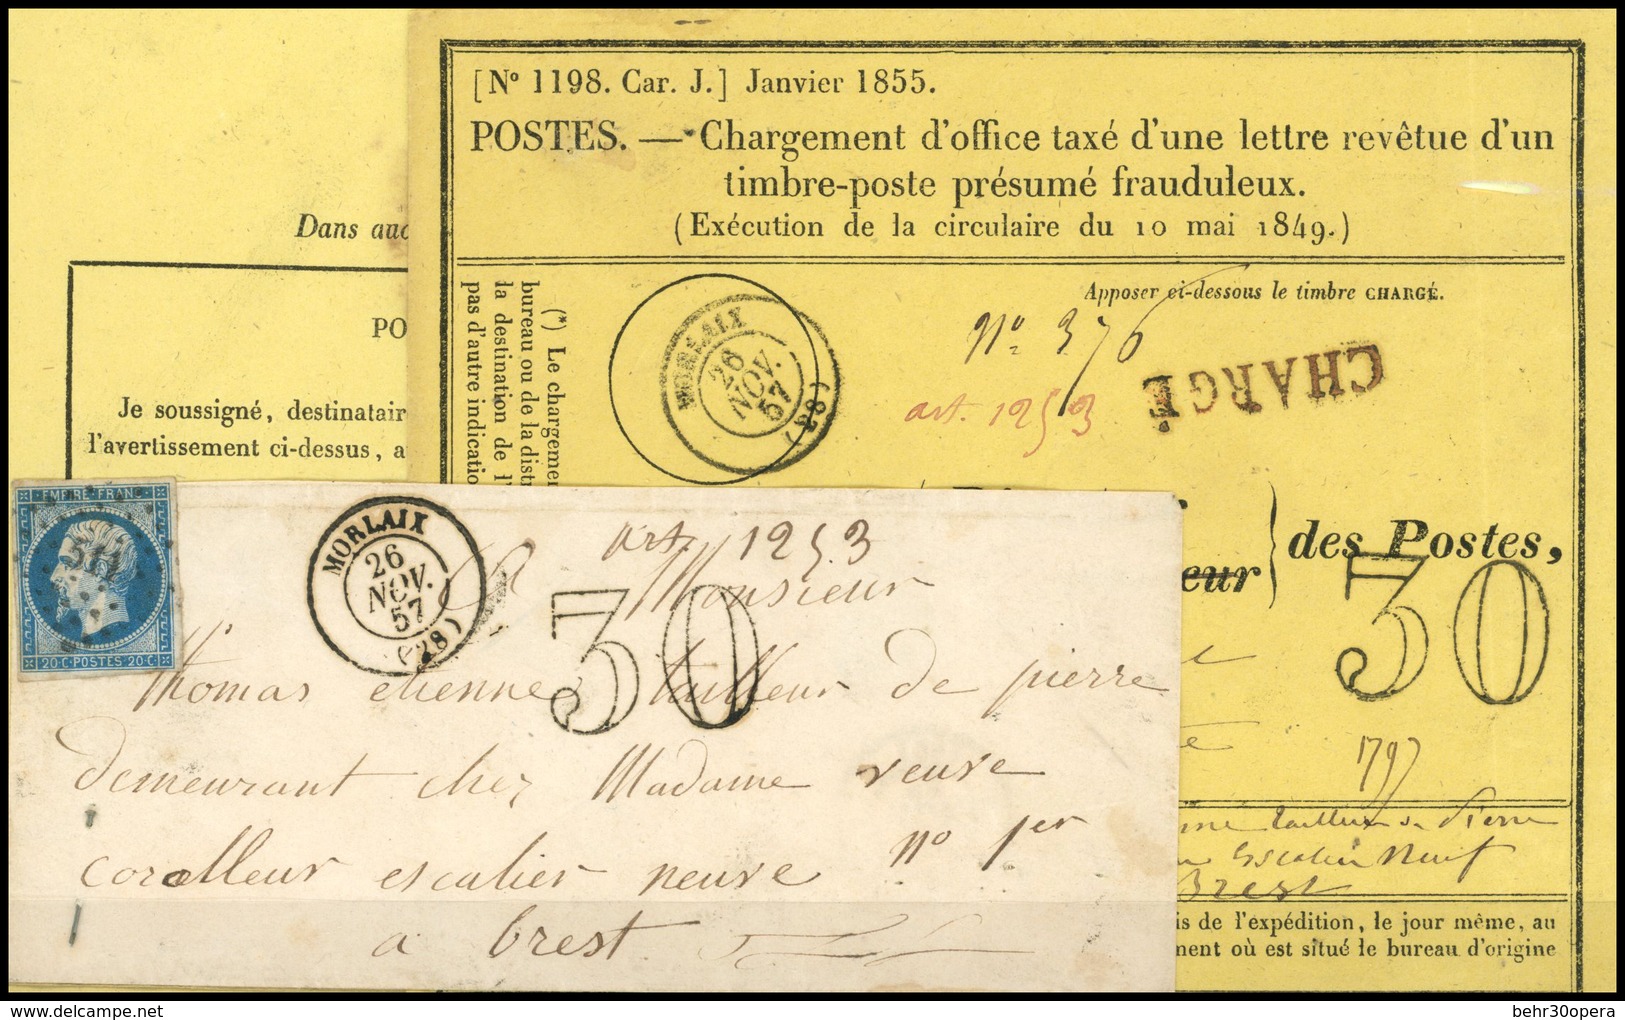 [N° 1198. Car. J.] Janvier 1855.
POSTES. — Chargement d'office taxé d'une lettre revêtue d'un
timbre-poste présumé frauduleux.
(Exécution de la circulaire du 10 mai 1849.)
Dans auc
PO
Je soussigné, destinatair
l'avertissement ci-dessus, a
(*) Le chargemen
bureau ou de la distr
la destination de l'
pas d'autre indicatio
MORLAIX
26
NOV.
57
(28)
Apposer ci-dessous le timbre CHARGÉ.
N° 376
CHARGÉ
art. 1253
des Postes,
eur
30
EMPIRE FRANC
20 C POSTES 20 C
MORLAIX
26
NOV.
57
(28)
art. 1253
30
Monsieur
Thomas etienne tailleur de pierre
demeurant chez Madame veuve
coralleur escalier neuve n° 1er
a brest
tailleur de Pierre
Escalier Neuf
Brest
is de l'expédition, le jour même, au
ment où est situé le bureau d'origine
delcampe.net
behr30opera